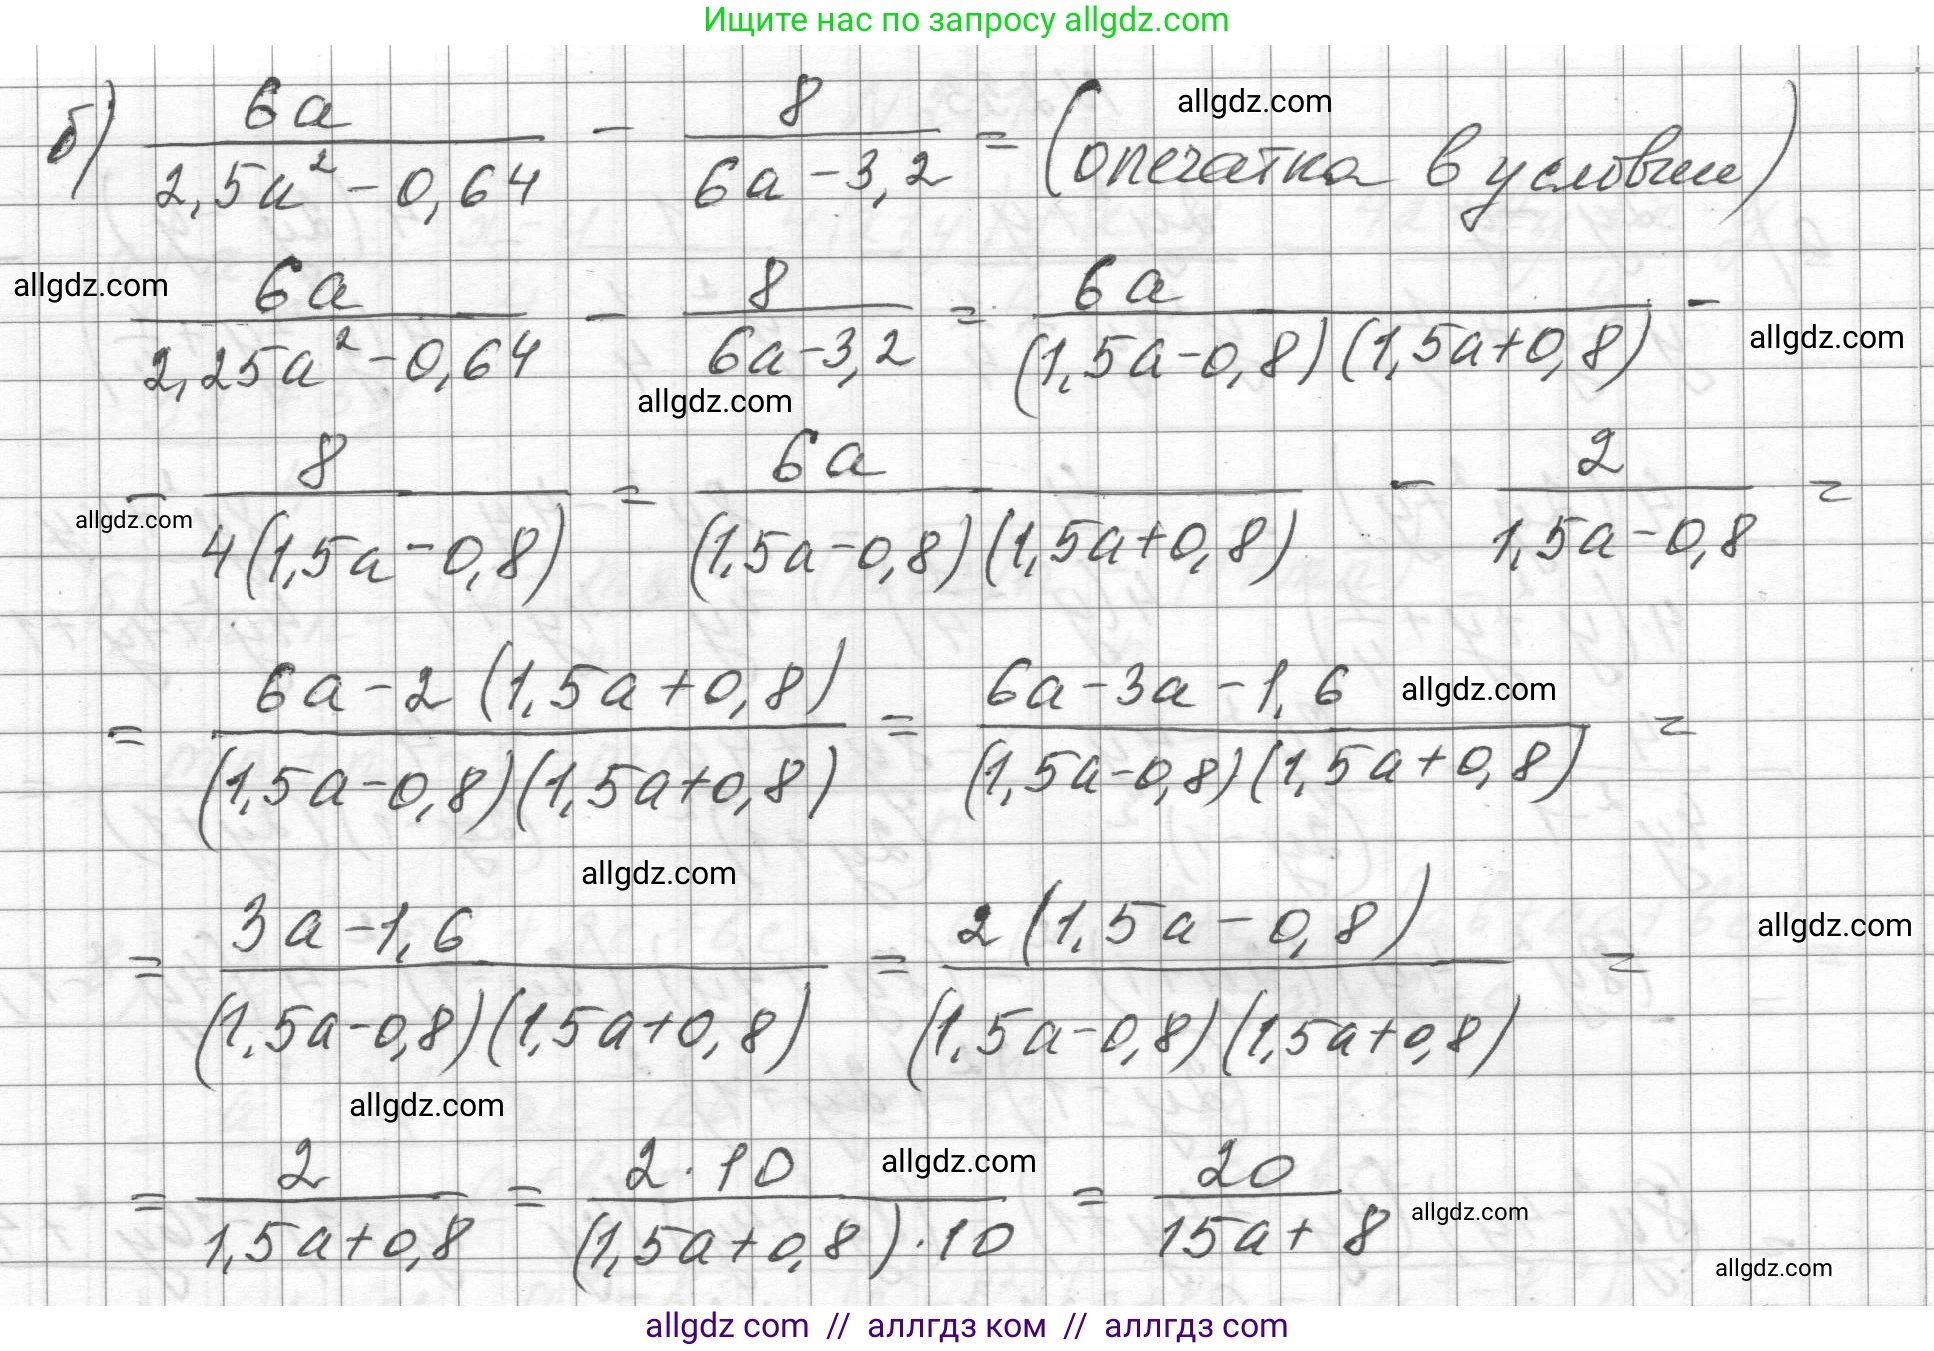 Ищите нас по запросу allgdz.com
б) 6a/(2,5a² - 0,64) - 8/(6a - 3,2) = (опечатка в условии) allgdz.com
allgdz.com 6a/(2,25a² - 0,64) - 8/(6a - 3,2) = 6a/((1,5a - 0,8)(1,5a + 0,8)) - allgdz.com
allgdz.com
- 8/(4(1,5a - 0,8)) = 6a/((1,5a - 0,8)(1,5a + 0,8)) - 2/(1,5a - 0,8) =
allgdz.com
= (6a - 2(1,5a + 0,8))/((1,5a - 0,8)(1,5a + 0,8)) = (6a - 3a - 1,6)/((1,5a - 0,8)(1,5a + 0,8)) = allgdz.com
allgdz.com
= (3a - 1,6)/((1,5a - 0,8)(1,5a + 0,8)) = 2(1,5a - 0,8)/((1,5a - 0,8)(1,5a + 0,8)) = allgdz.com
allgdz.com
= 2/(1,5a + 0,8) = 2·10/((1,5a + 0,8)·10) = 20/(15a + 8) allgdz.com allgdz.com
allgdz.com
allgdz com // аллгдз ком // аллгдз com